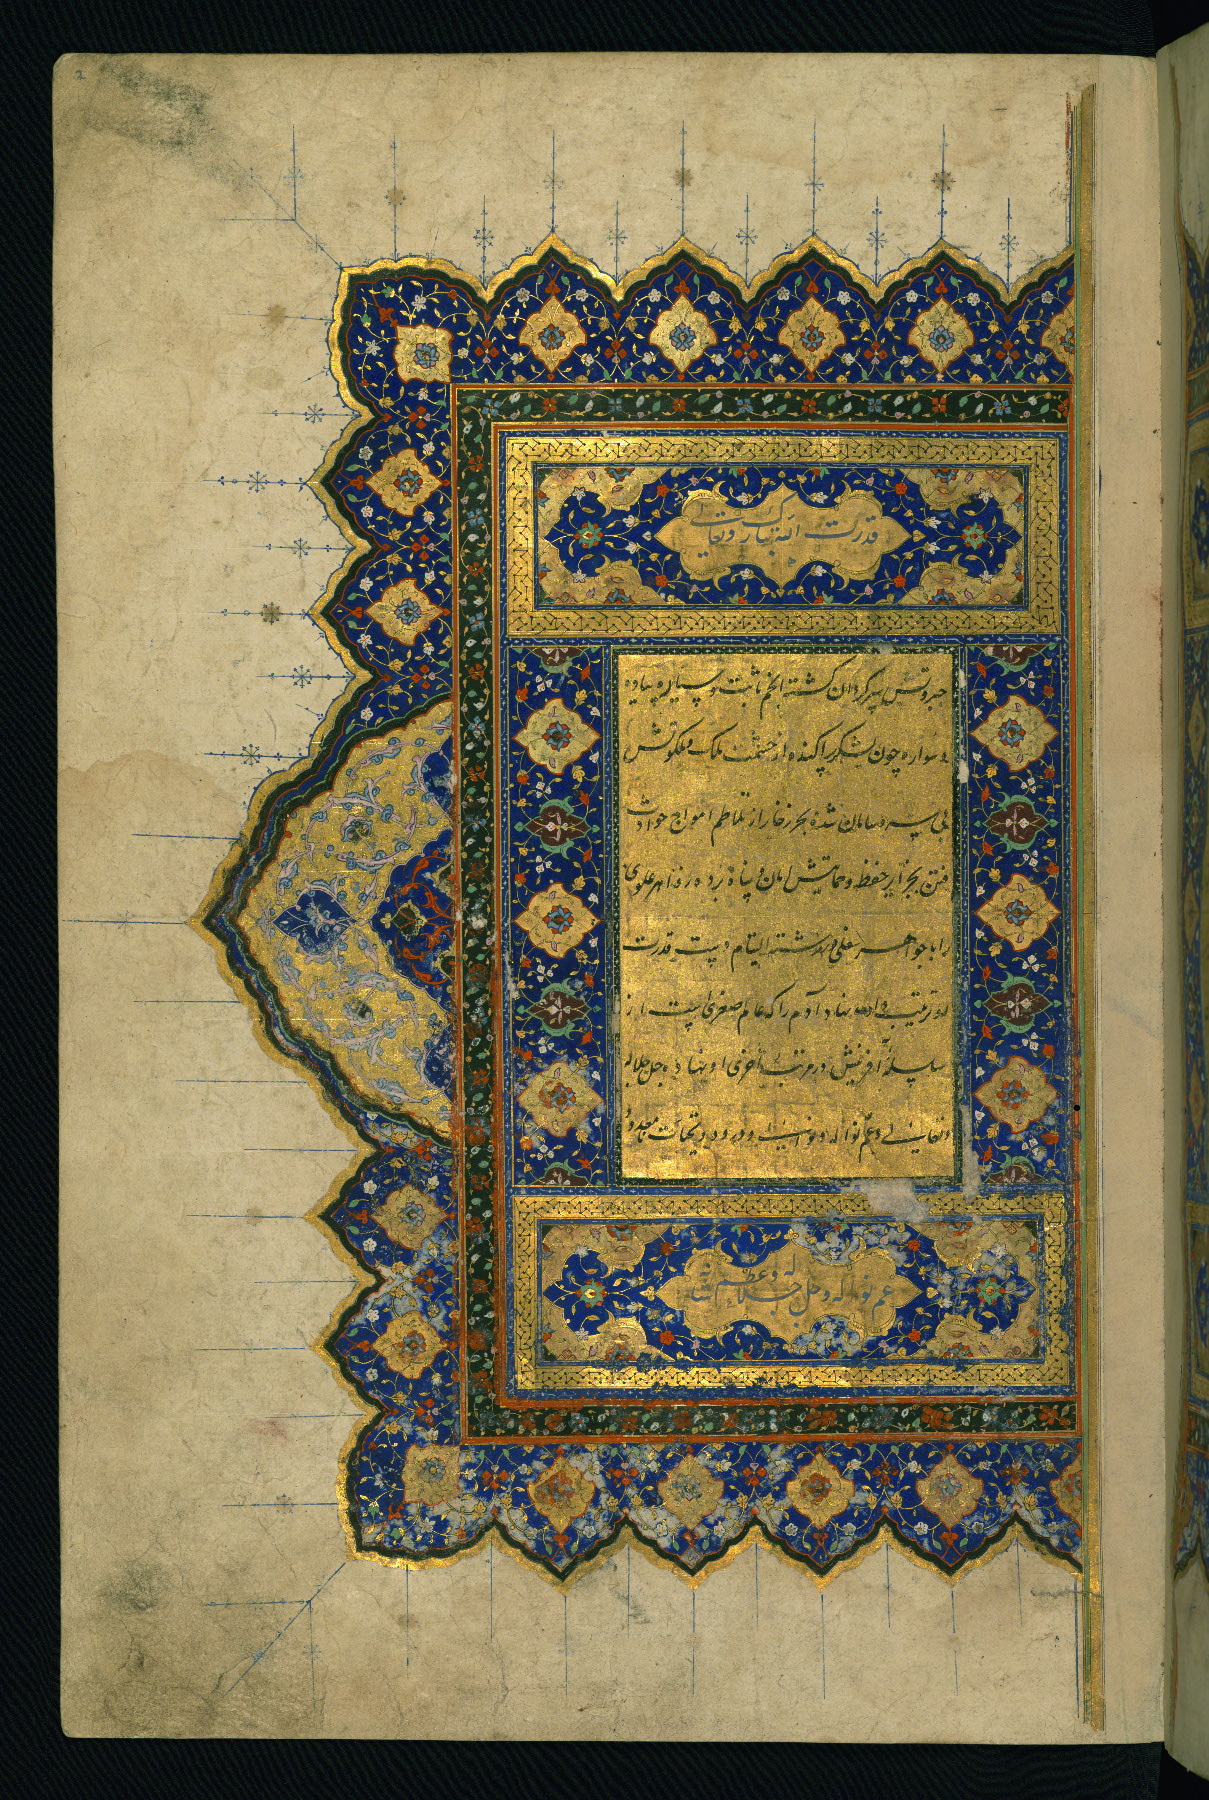 2
قدرت الله تبارک و تعالی
جبروتش سپر گردان گشته انجم ثابت و سیاره پیاده
و سواره چون لشکر پراکنده از حشمت ملک و ملکوتش
بی سر و سامان شده بحر زخار از تلاطم امواج حوادث
فتن بجزایر حفظ و حمایتش امان و پناه برده زواهر علوی
را با جواهر سفلی در رشته التیام دست قدرت
او ترتیب داده نهاد آدم را که عالم صغری است از
سلسله آفرینش در مرتبه اخری او نهاده جل جلاله
و عم نواله و درود و تحیات نامعدود
عم نواله و جل جلاله و عظم شانه